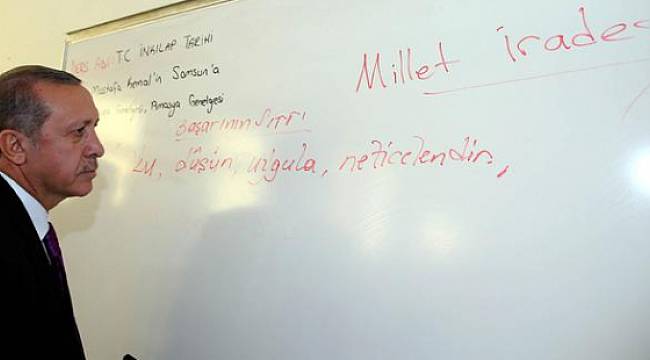 DERS ADI: T.C İNKILAP TARİHİ
Mustafa Kemal'in Samsun'a
Genelgesi, Amasya Genelgesi
Başarının Sırrı
düşün, uygula, neticelendir,
Millet